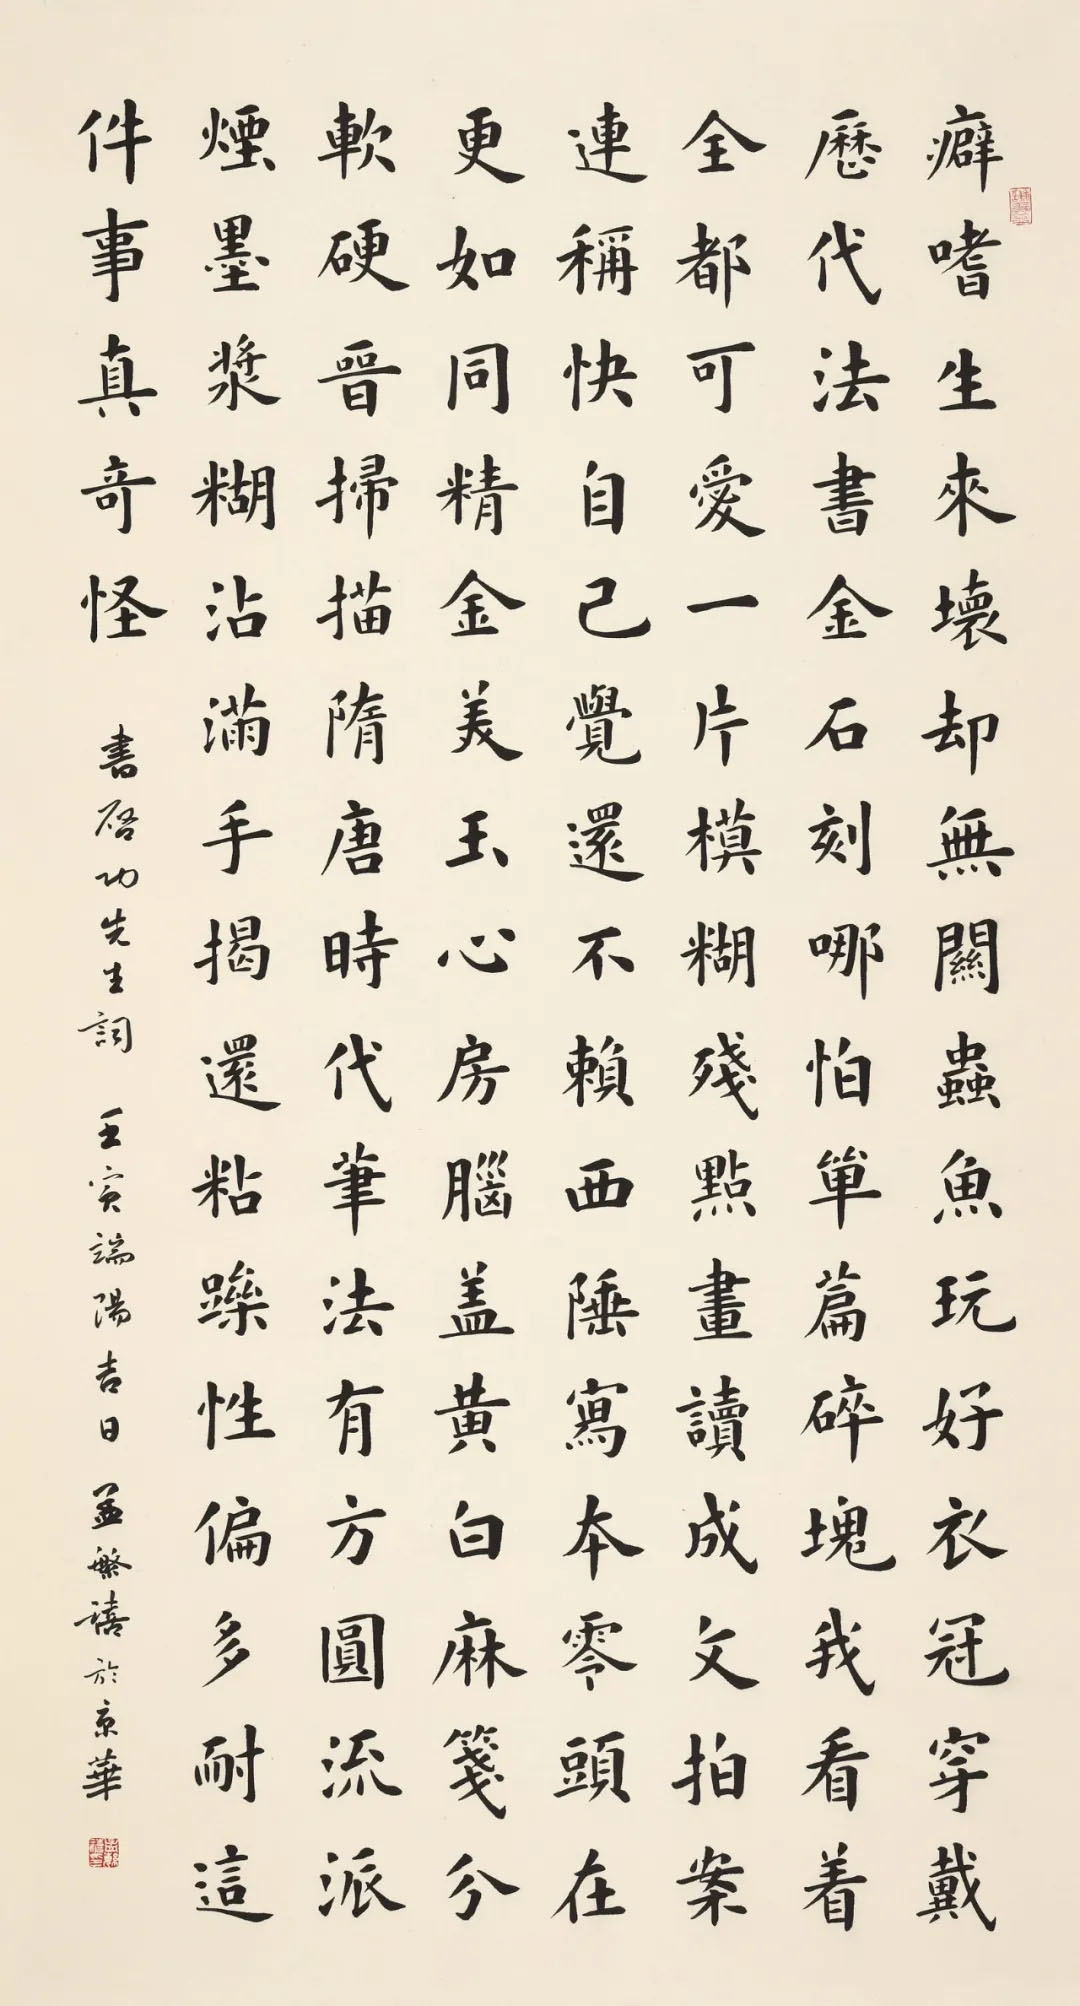 癖嗜生來壞却無關蟲魚玩好衣冠穿戴
歷代法書金石刻哪怕單篇碎塊我看着
全都可愛一片模糊殘點畫讀成文拍案
連稱快自己覺還不賴西陲寫本零頭在
更如同精金美玉心房腦盖黄白麻箋分
軟硬晉掃描隋唐時代筆法有方圓流派
煙墨漿糊沾滿手揭還粘躁性偏多耐這
件事真奇怪
書啓功先生詞 壬寅端陽吉日 孟繁禧於京華